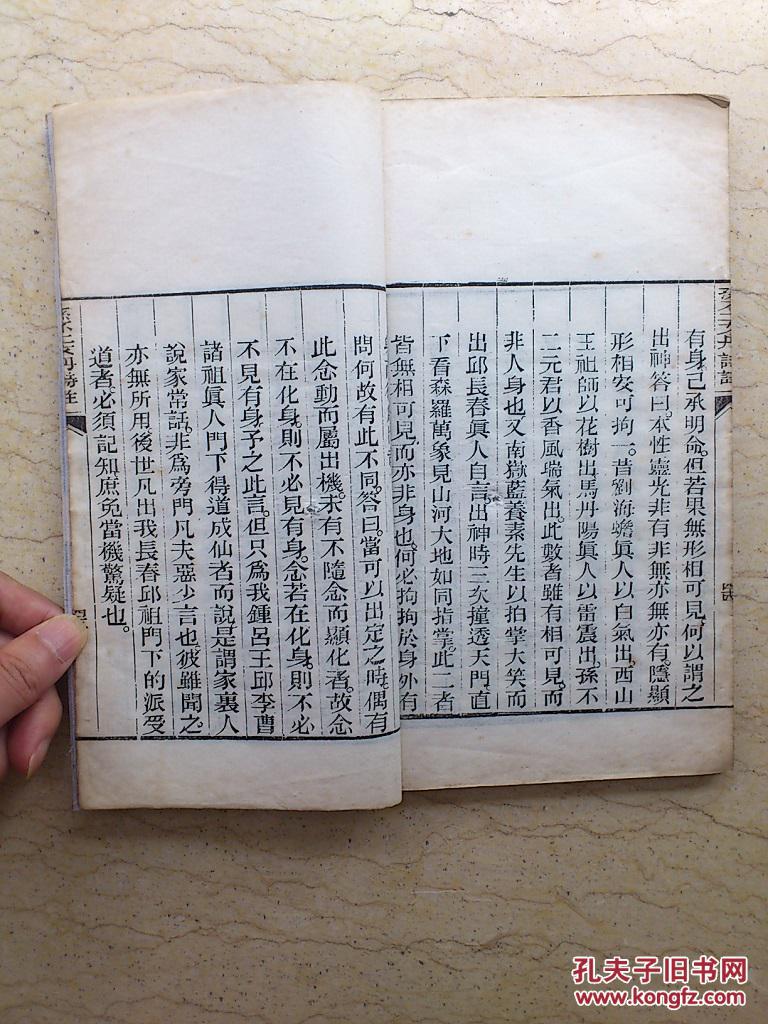 有身己承明命。但若果無形相可見。何以謂之
出神答曰。本性靈光非有非無亦無亦有。隱顯
形相安可拘一。昔劉海蟾眞人以白氣出。西山
王祖師以花樹出。馬丹陽眞人以雷震出。孫不
二元君以香風瑞氣出。此數者雖有相可見。而
非人身也。又南嶽藍養素先生以拍掌大笑而
出。邱長春眞人自言出神時三次撞透天門。直
下看森羅萬象見山河大地如同指掌。此二者
皆無相可見。而亦非身也。何必拘拘於身外有
問何故有此不同。答曰。當可以出定之時。偶有
此念動而屬出機。未有不隨念而顯化者。故念
不在化身。則不必見有身。念若在化身。則不必
不見有身。予之此言。但只爲我鍾呂王邱李曹
諸祖眞人門下得道成仙者而說。是謂家裏人
說家常話。非爲旁門凡夫惡少言也。彼雖聞之
亦無所用。後世凡出我長春邱祖門下的派受
道者必須記知。庶免當機驚疑也。
孔夫子旧书网
www.kongfz.com